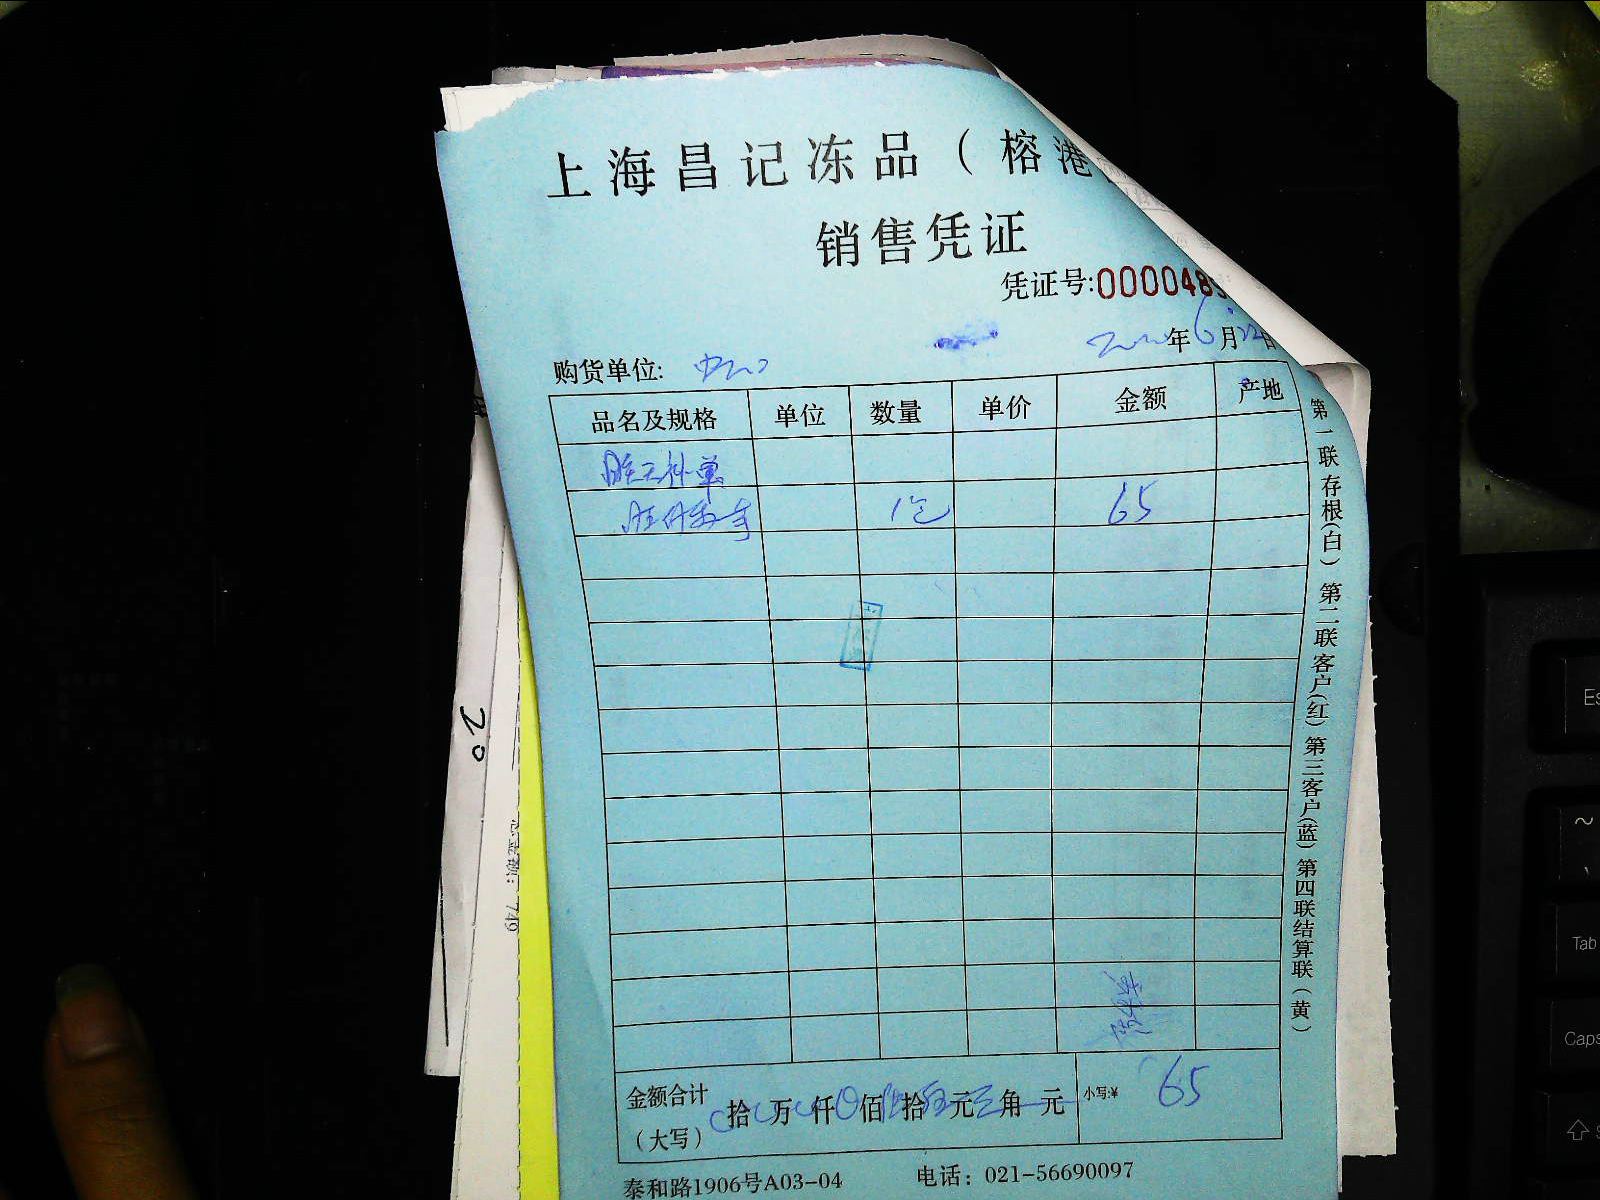 上海昌记冻品（榕港
销售凭证
凭证号:000048
年6月22日
购货单位:
品名及规格 单位 数量 单价 金额 产地
补单
1包 65
第一联存根(白) 第二联客户(红) 第三客户(蓝) 第四联结算联(黄)
金额合计(大写) 拾 万 仟 佰 拾 元 角 元 小写:¥ 65
泰和路1906号A03-04 电话: 021-56690097
20
总金额: 749
Es
~
Tab
Caps